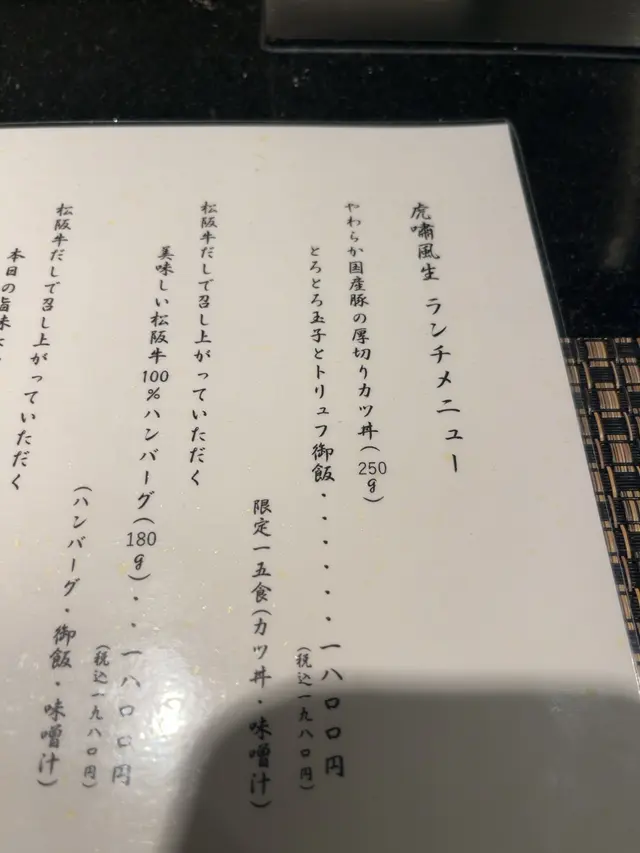 虎嘯風生 ランチメニュー
やわらか国産豚の厚切りカツ丼(250g)
とろとろ玉子とトリュフ御飯・・・・・・・一八〇〇円
(税込一九八〇円)
限定一五食(カツ丼・味噌汁)
松阪牛だしで召し上がっていただく
美味しい松阪牛100%ハンバーグ(180g)・・一八〇〇円
(税込一九八〇円)
(ハンバーグ・御飯・味噌汁)
松阪牛だしで召し上がっていただく
本日の旨味